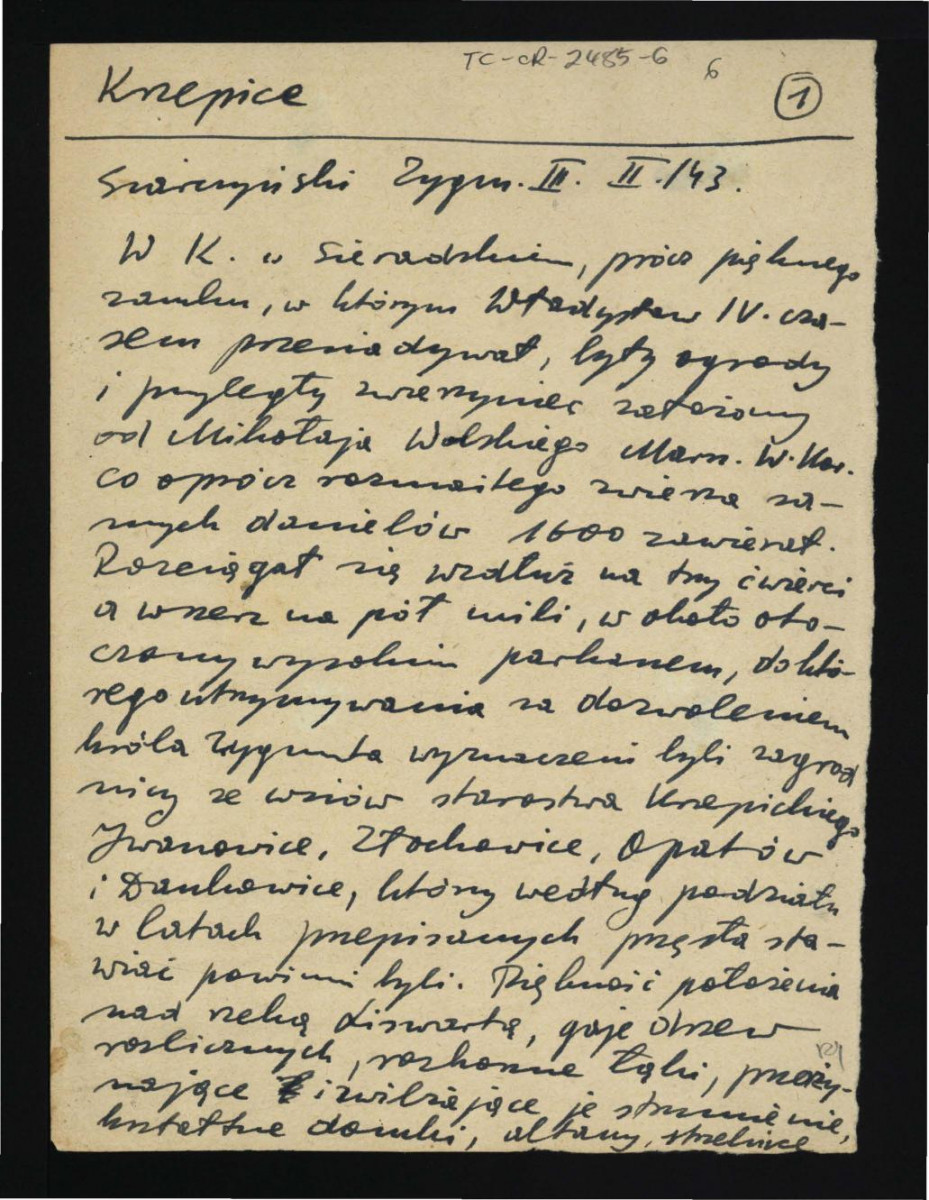 TC-CR-2485-6 6
Krzepice 1
Siarczyński Zygm. III. II./43.
W K. w Sieradzkim, prócz pięknego
zamku, w którym Władysław IV. cza-
sem przesiadywał, były ogrody
i przyległy zwierzyniec założony
od Mikołaja Wolskiego Marsz. W. Kor.
co oprócz rozmaitego zwierza sa-
mych danielów 1600 zawierał.
Rozciągał się wzdłuż na trzy ćwierci
a wszerz na pół mili, w około oto-
czony wysokim parkanem, do któ-
rego utrzymywania za dozwoleniem
króla Zygmunta wyznaczeni byli zagrod
nicy ze wsiów starostwa Krzepickiego
Iwanowice, Złochowice, Opatów
i Dankowice, którzy według podziału
w latach przepisanych przęsła sta-
wiać powinni byli. Piękność położenia
nad rzeką Liswartą, gaje drzew
rozlicznych, rozkoszne łąki, przerzy-
nające i zwilżające je strumienie,
kształtne domki, altany, strzelnice